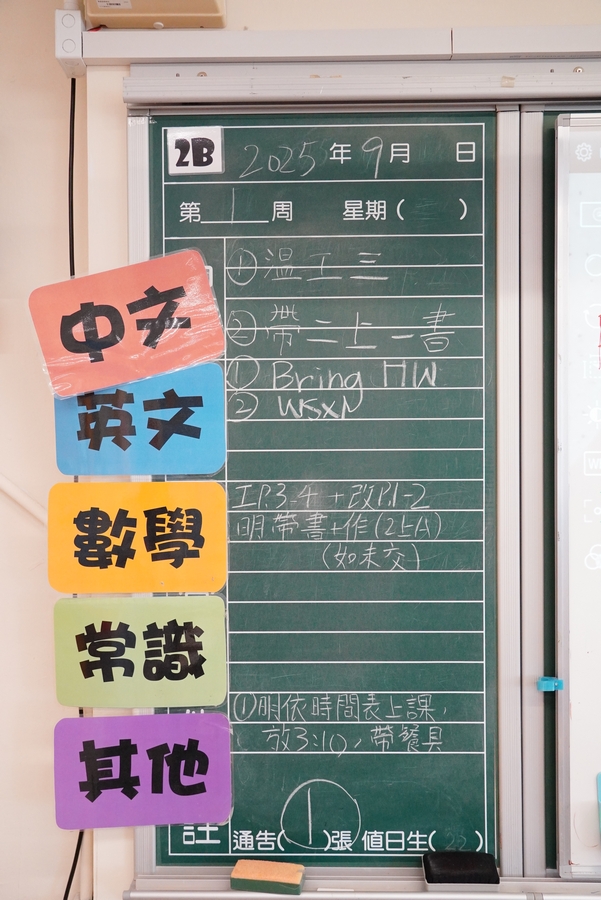 2B 2025年9月 日
第 1 周 星期( )
中文
① 溫工三
② 帶二上一書
英文
① Bring HW
② WSxN
數學
工P.3-4+改P.1-2
明帶書+作(2上A)
(如未交)
常識
其他
①明依時間表上課，
放3:10，帶餐具
註
通告( 1 )張 值日生( 22 )